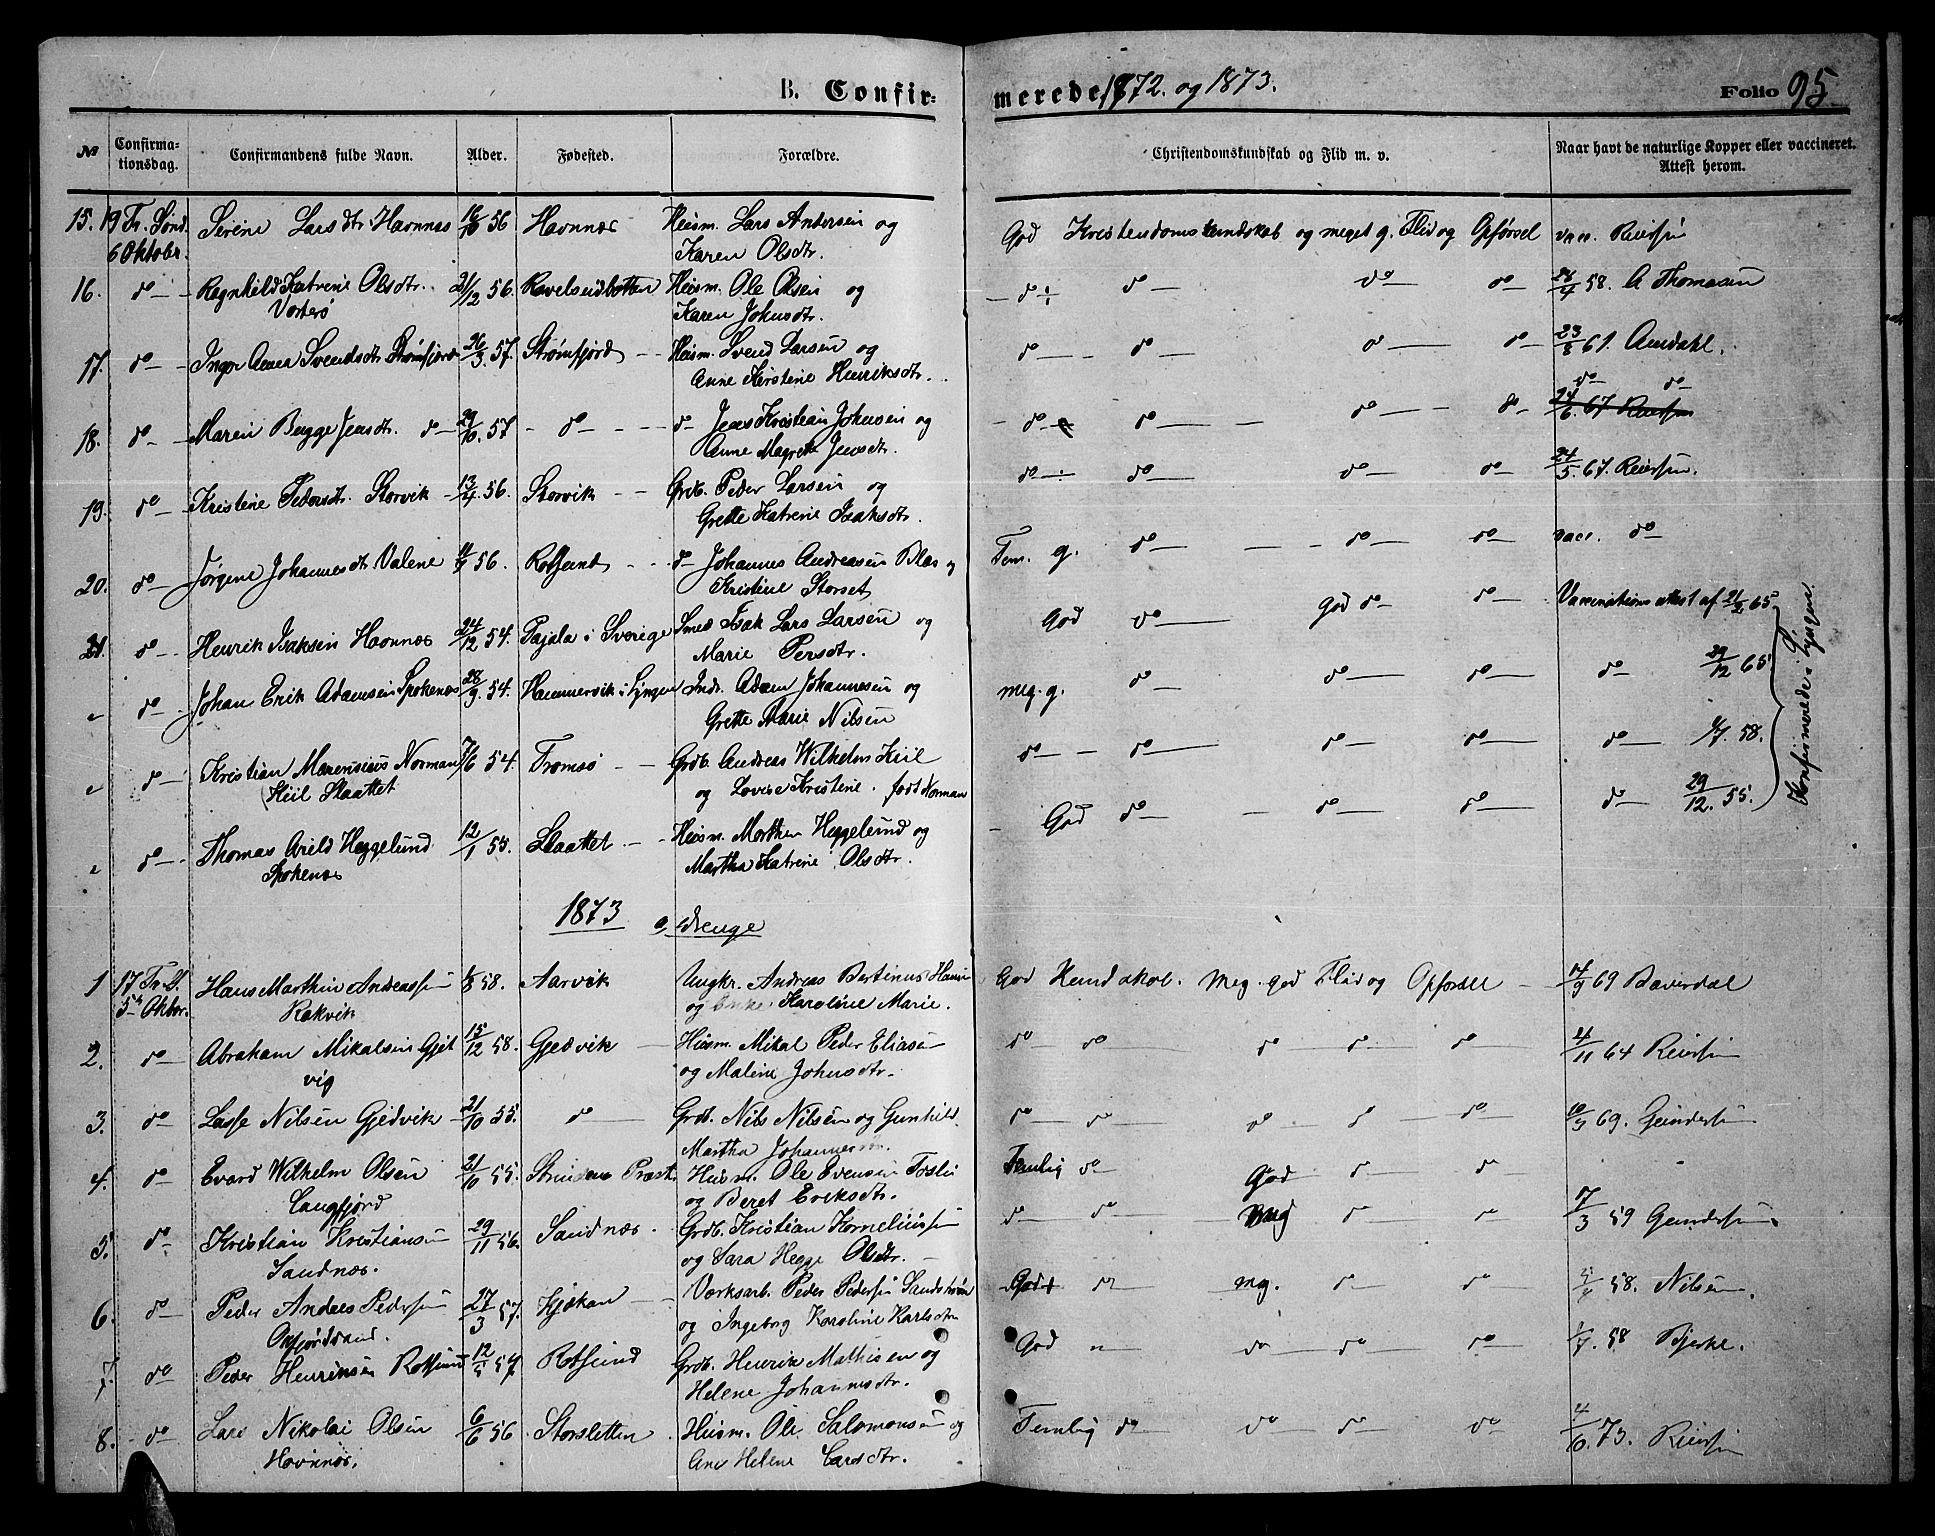 B. Confirmerede 1872. og 1873. Folio 95.
№ Confirmationsdag. Confirmandens fulde Navn. Alder. Fødested. Forældre. Christendomskundskab og Flid m. v. Naar havt de naturlige Kopper eller vaccineret. Attest herom.
15. 19 Tr. Sønd. Serine Larsdtr Havnnæs 56 Havnnæs Huusm. Lars Andersen og God Kristendomskundskab og meget g. Flid og Opførsel vacc. Reiersen
6 Oktobr. Karen Olsdtr.
16. do Ragnhild Katrine Olsdtr. 21/2 56. Ravelseidbotten Huusm. Ole Olsen og do do do do 26/4 58. A Thomasen
Vorterø Karen Johnsdtr.
17. do Inger Anna Svendsdtr Strømfjord 26/3 57. Strømfjord Huusm. Svend Larsen og do do do do 23/8 61. Aandahl.
Anne Kirstine Henriksdtr. do do
18. do Maren Bugge Jensdtr. do 29/10 57 do do Jens Kristian Johnsen og do do do do 24/6. 67 Reiersen
Anne Magrete Jensdtr.
19. do Kristine Pedersdtr. Storvik 13/4 56. Storvik Grdb. Peder Larsen og do do do do 24/5 67. Reiersen.
Grette Katrine Isaksdtr.
20. do Jørgine Johannesdtr Valene 56. Rotsund do Johannes Andreasen Blas og Tem. g. do do do vacc. do
Kristine Storset
21. do Henrik Isaksen Havnnæs 24/12 54. Pajala i Sverige Smed Isak Lars Larsen og God do God do do Vaccinations attest af 21/2 65
Marie Persdtr.
do Johan Erik Adamsen Spokenæs 28/9. 54. Hammervik i Lyngen Indr. Adam Johannesen og meg. g. do do do do 29/12 65
Grette Marie Nilsen
do Kristian Marensius Norman 7/6 54. Tromsø Grdb. Andreas Wilhelm Kiil do do do do do 58.
Kiil Slaattet og Lovise Kristine. født Norman
do Thomas Arild Heggelund 12/1 55. Slaattet Huusm. Morthen Heggelund og God do do do do 29/12. 55.
Spokenæs Martha Katrine Olsdtr.
Konfirmerede i Lyngen.
1873 a, Drenge
1 17 Tr. S. Hans Marthin Andreassen 58. Aarvik Ungkr. Andreas Bertinus Hansen God Kundskab. Meg. God Flid og Opførsel 14/9 69 Baverdal
5te Oktbr. Rakvik og Enke Karoline Marie.
2. do Abraham Mikalsen Gjet 15/12 58. Gjedvik Huusm. Mikal Peder Eliasen do do do do do 4/11 64 Reiersen
vig og Malene Johnsdtr.
3. do Lasse Nilsen Gjedvik 21/10 55. do Grdb. Nils Nilsen og Gunhild do do do do do 10/9 69. Gundersen
Martha Johannesen.
4. do Evard Wilhelm Olsen 21/10 55. Strindens Præst. Huusm. Ole Evensen Foslie Temlig do God do do
Langfjord og Beret Eriksdtr.
5. do Kristian Kristiansen 29/11 56. Sandnæs. Grdb. Kristian Korneliussen do do Meg do do 17/3 59 Gundersen.
Sandnæs. og Sara Hegge Olsdtr.
6. do Peder Andreas Pedersen 27/3 57. Kjækan Værksarb. Peder Pedersen Sandstrøm God do mg. do do 58. Nilsen.
Oxfjordsand. og Ingeborg Karoline Karlsdtr
7. do Peder Henriksen Rotsund 12/5 57 Rotsund Grdb. Henrik Mathisen og God " do do do 58 Bjerke.
Helene Johannesdtr.
8. do Lars Nikolai Olsen 6/6 56 Storsletten Huusm. Ole Salomonsen og Temlig do do do do 4/10. 73. Reiersen
Havnnæs. Ane Helene Larsdtr.